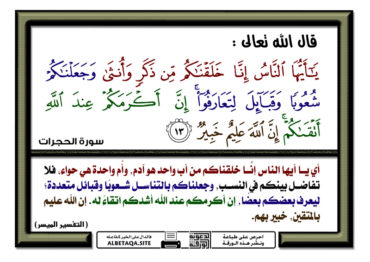 قال الله تعالى :
يَـٰٓأَيُّهَا ٱلنَّاسُ إِنَّا خَلَقْنَـٰكُم مِّن ذَكَرٍ وَأُنثَىٰ وَجَعَلْنَـٰكُمْ
شُعُوبًا وَقَبَآئِلَ لِتَعَارَفُوٓا۟ إِنَّ أَكْرَمَكُمْ عِندَ ٱللَّهِ
أَتْقَىٰكُمْ إِنَّ ٱللَّهَ عَلِيمٌ خَبِيرٌ ١٣
سورة الحجرات
أي يـا أيها الناس إنَّـا خلقناكم من أب واحد هو آدم، وأُم واحدة هي حواء، فلا
تفاضـل بينكم في النسـب، وجعلناكم بالتناسـل شـعوبًا وقبائل متعددة؛
ليعرف بعضكم بعضا، إن أكرمكم عند الله أشدكم اتقاءً له. إن الله عليم
بالمتقين، خبير بهم.
(التفسير الميسر)
احرص على طباعة
ونشر هذه الورقة
ALBETAQA.SITE